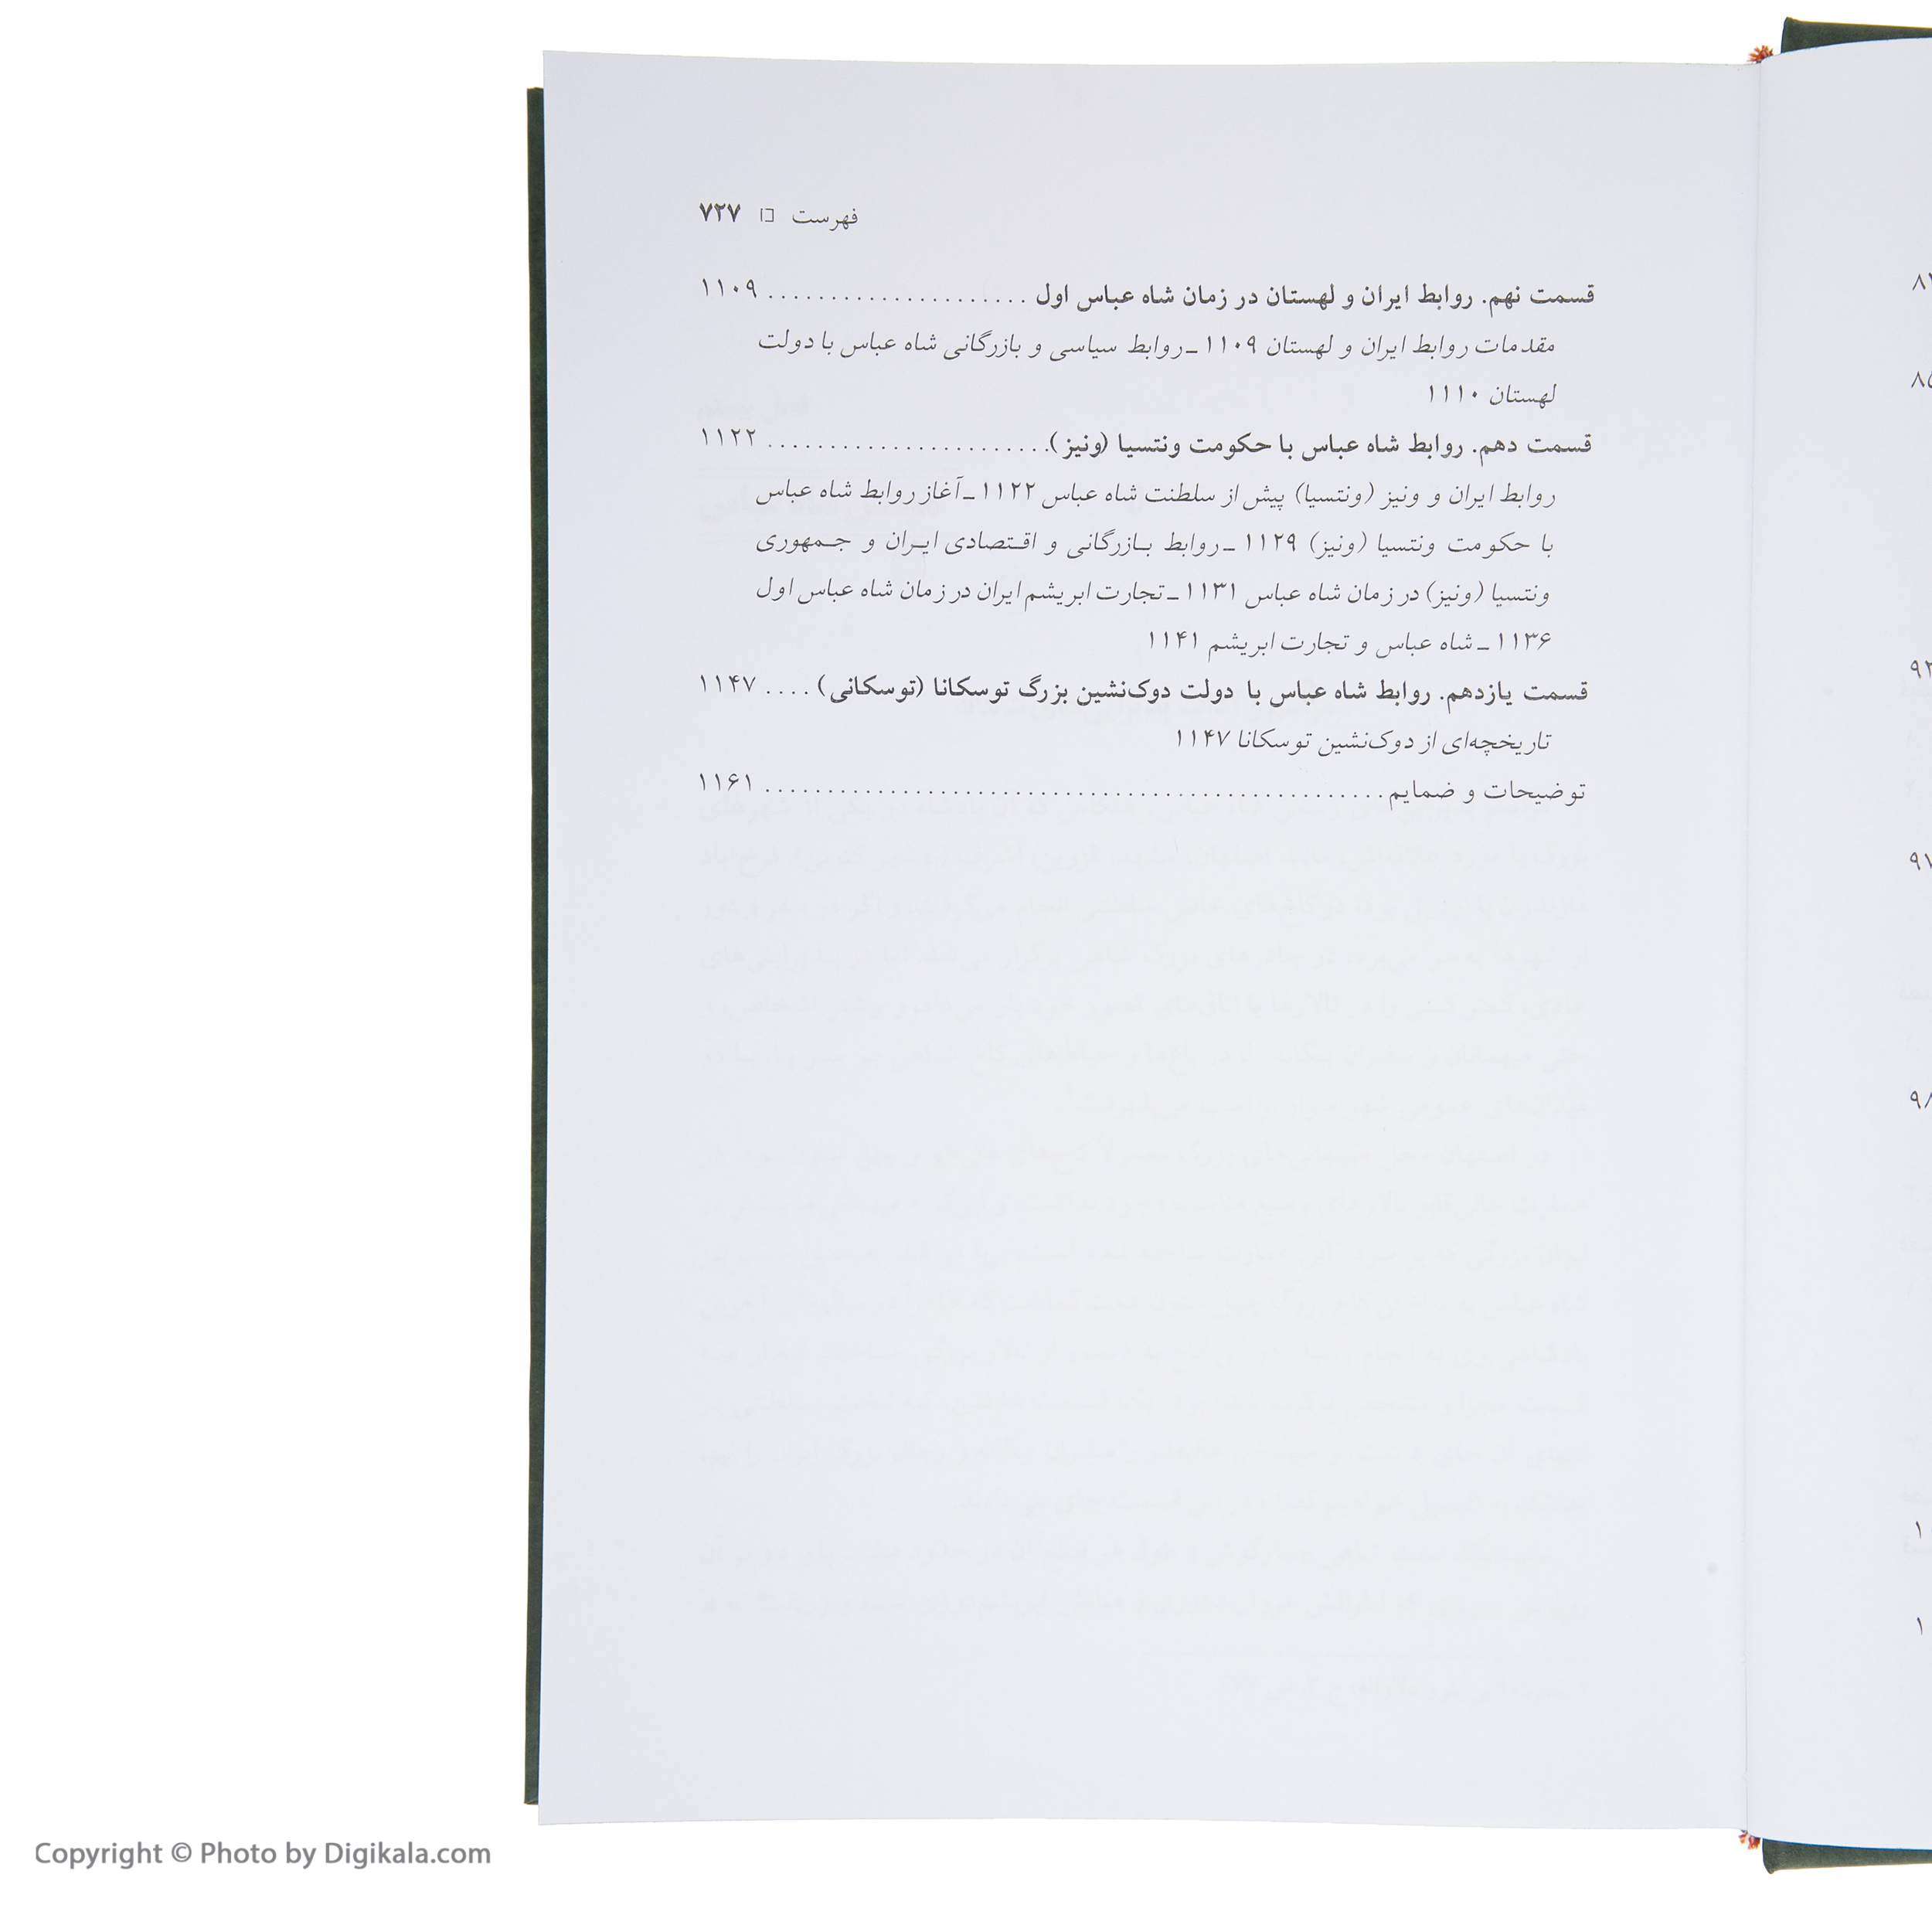 فهرست □ ۷۲۷
قسمت نهم. روابط ایران و لهستان در زمان شاه عباس اول ..................... ۱۱۰۹
مقدمات روابط ایران و لهستان ۱۱۰۹ ـ روابط سیاسی و بازرگانی شاه عباس با دولت
لهستان ۱۱۱۰
قسمت دهم. روابط شاه عباس با حکومت ونتسیا (ونیز)....................... ۱۱۲۲
روابط ایران و ونیز (ونتسیا) پیش از سلطنت شاه عباس ۱۱۲۲ ـ آغاز روابط شاه عباس
با حکومت ونتسیا (ونیز) ۱۱۲۹ ـ روابط بـازرگانی و اقـتصادی ایـران و جـمهوری
ونتسیا (ونیز) در زمان شاه عباس ۱۱۳۱ ـ تجارت ابریشم ایران در زمان شاه عباس اول
۱۱۳۶ ـ شاه عباس و تجارت ابریشم ۱۱۴۱
قسمت یازدهم. روابط شاه عباس با دولت دوک‌نشین بزرگ توسکانا (توسکانی) .... ۱۱۴۷
تاریخچه‌ای از دوک‌نشین توسکانا ۱۱۴۷
توضیحات و ضمایم.................................................. ۱۱۶۱
Copyright © Photo by Digikala.com